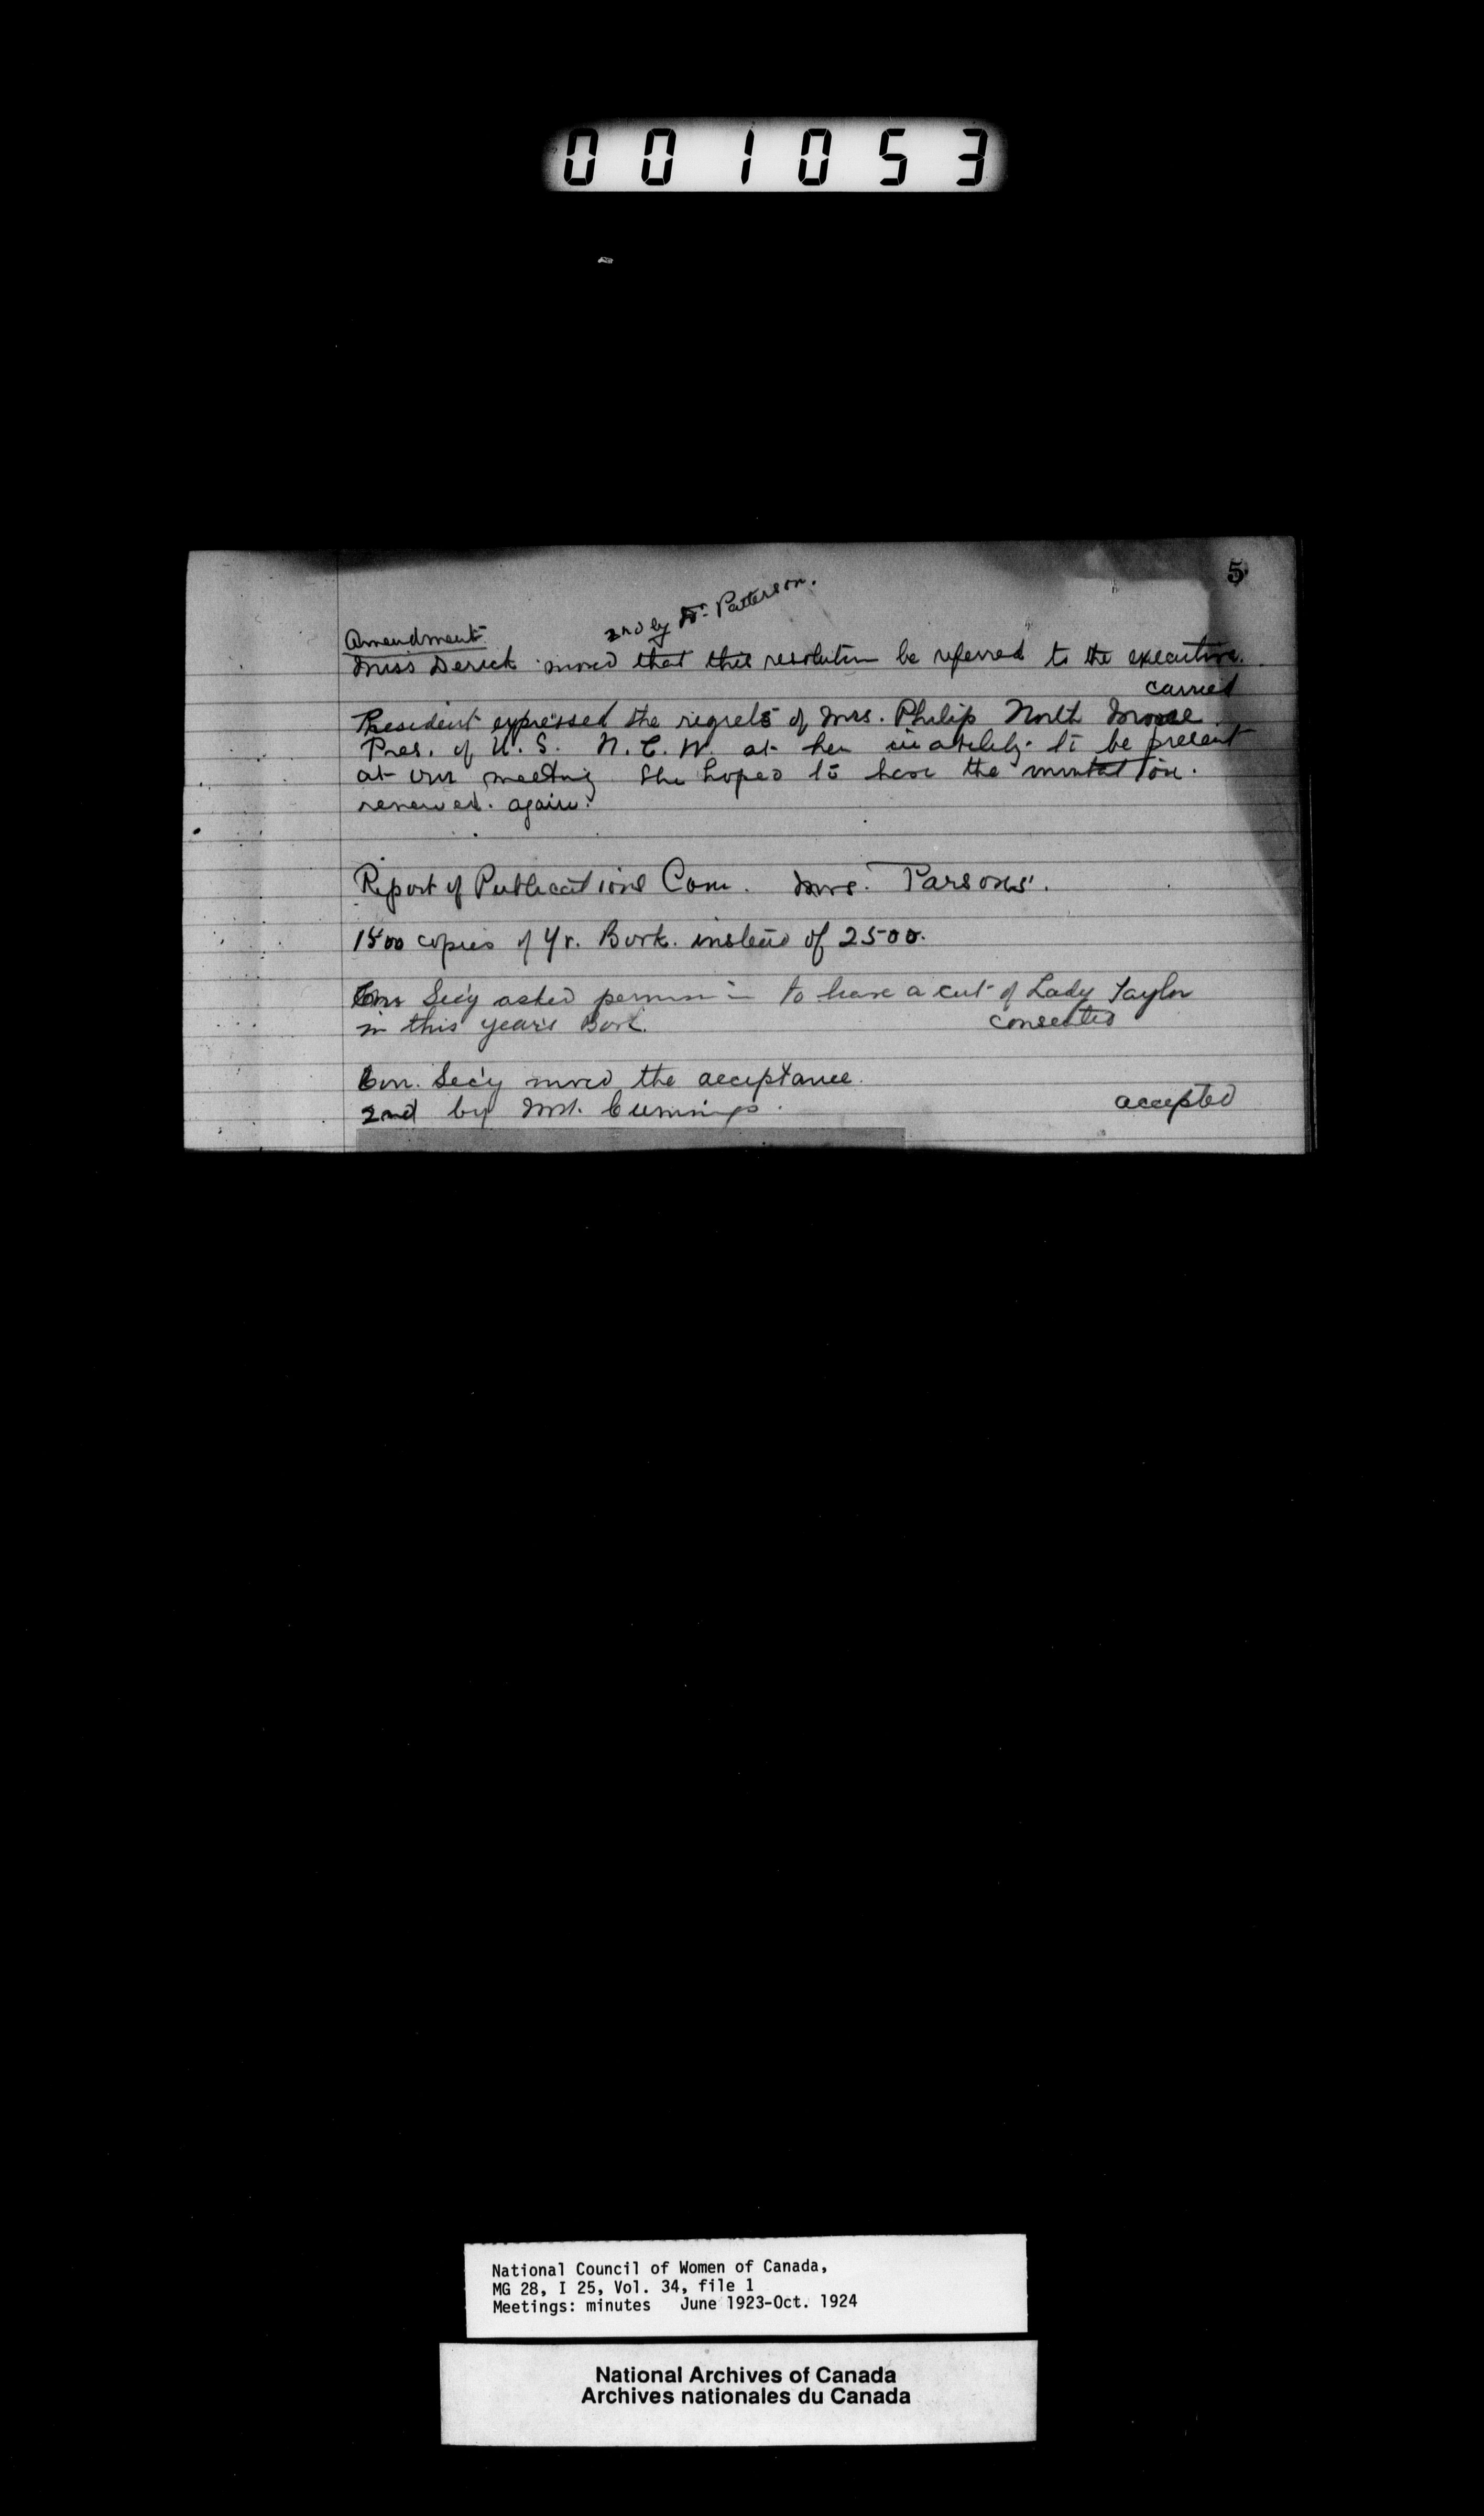 001053
5
2nd by Dr. Patterson.
Amendment
Miss Derick moved that this resolution be referred to the executive.
carried
President expressed the regrets of Mrs. Philip North Moore
Pres. of U. S. N. C. W. at her inability to be present
at our meeting She hoped to have the invitation.
renewed. again.
Report of Publications Com. Mrs. Parsons.
1500 copies of Yr. Book. instead of 2500.
Sec'y asked to have a cut of Lady Taylor
in this year's Book.
consented
Corr. Sec'y moved the acceptance.
2nd by Mrs. Cummings.
accepted
National Council of Women of Canada,
MG 28, I 25, Vol. 34, file 1
Meetings: minutes June 1923-Oct. 1924
National Archives of Canada
Archives nationales du Canada